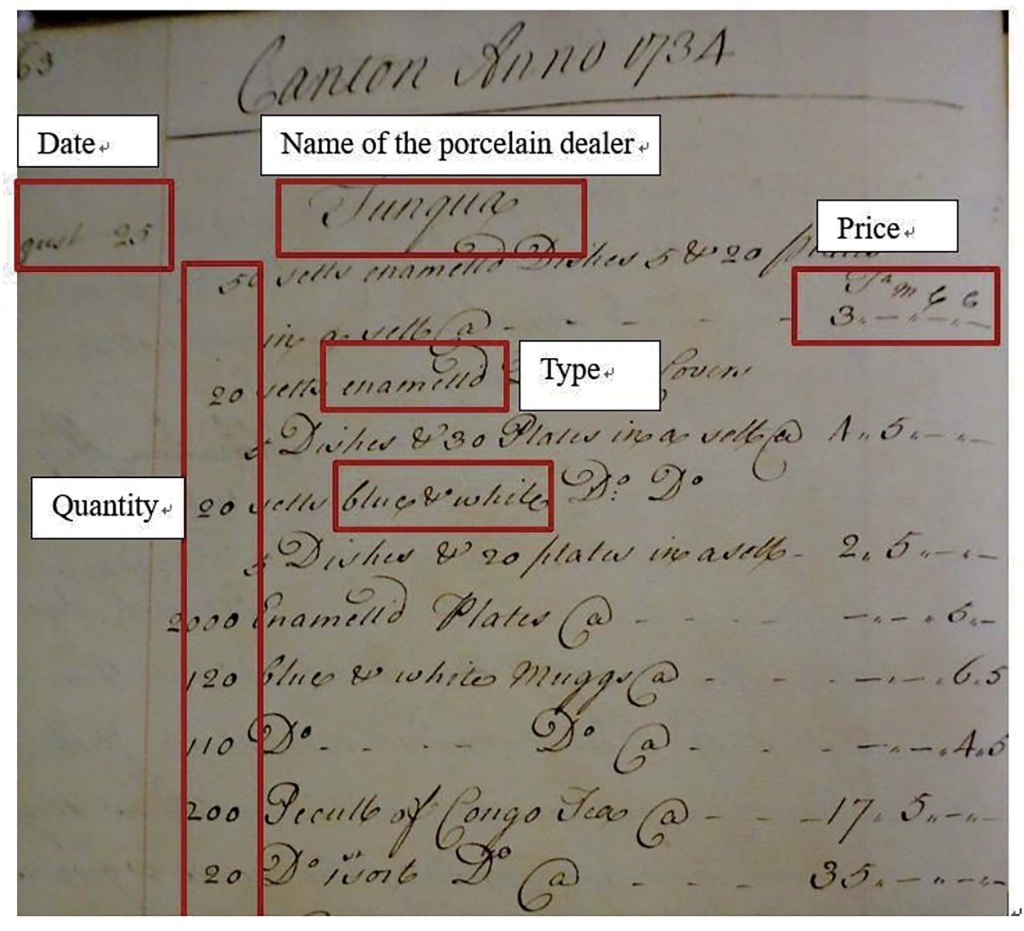 63
Canton Anno 1734
Date
Name of the porcelain dealer
gust 25
Tunqua
Price
50 setts enamelld Dishes 5 & 20 plates
Ta m C C
in a sett @ - - - - - 3 " - " - " -
Type
20 setts enamelld Covers
2 Dishes & 30 Plates in a sett @ 4 " 5 " - " -
Quantity
20 setts blue & white Do: Do
2 Dishes & 20 plates in a sett - 2 " 5 " - " -
2000 Enamelld Plates @ - - - - - " - " 5 " -
120 blue & white Muggs @ - - - - " - " 6 " 5
110 Do - - - - Do @ - - - - " - " 4 " 5
200 Pecull of Congo Tea @ - - - 17 " 5 " - " -
20 Do sort Do @ - - - 35 " - " - " -